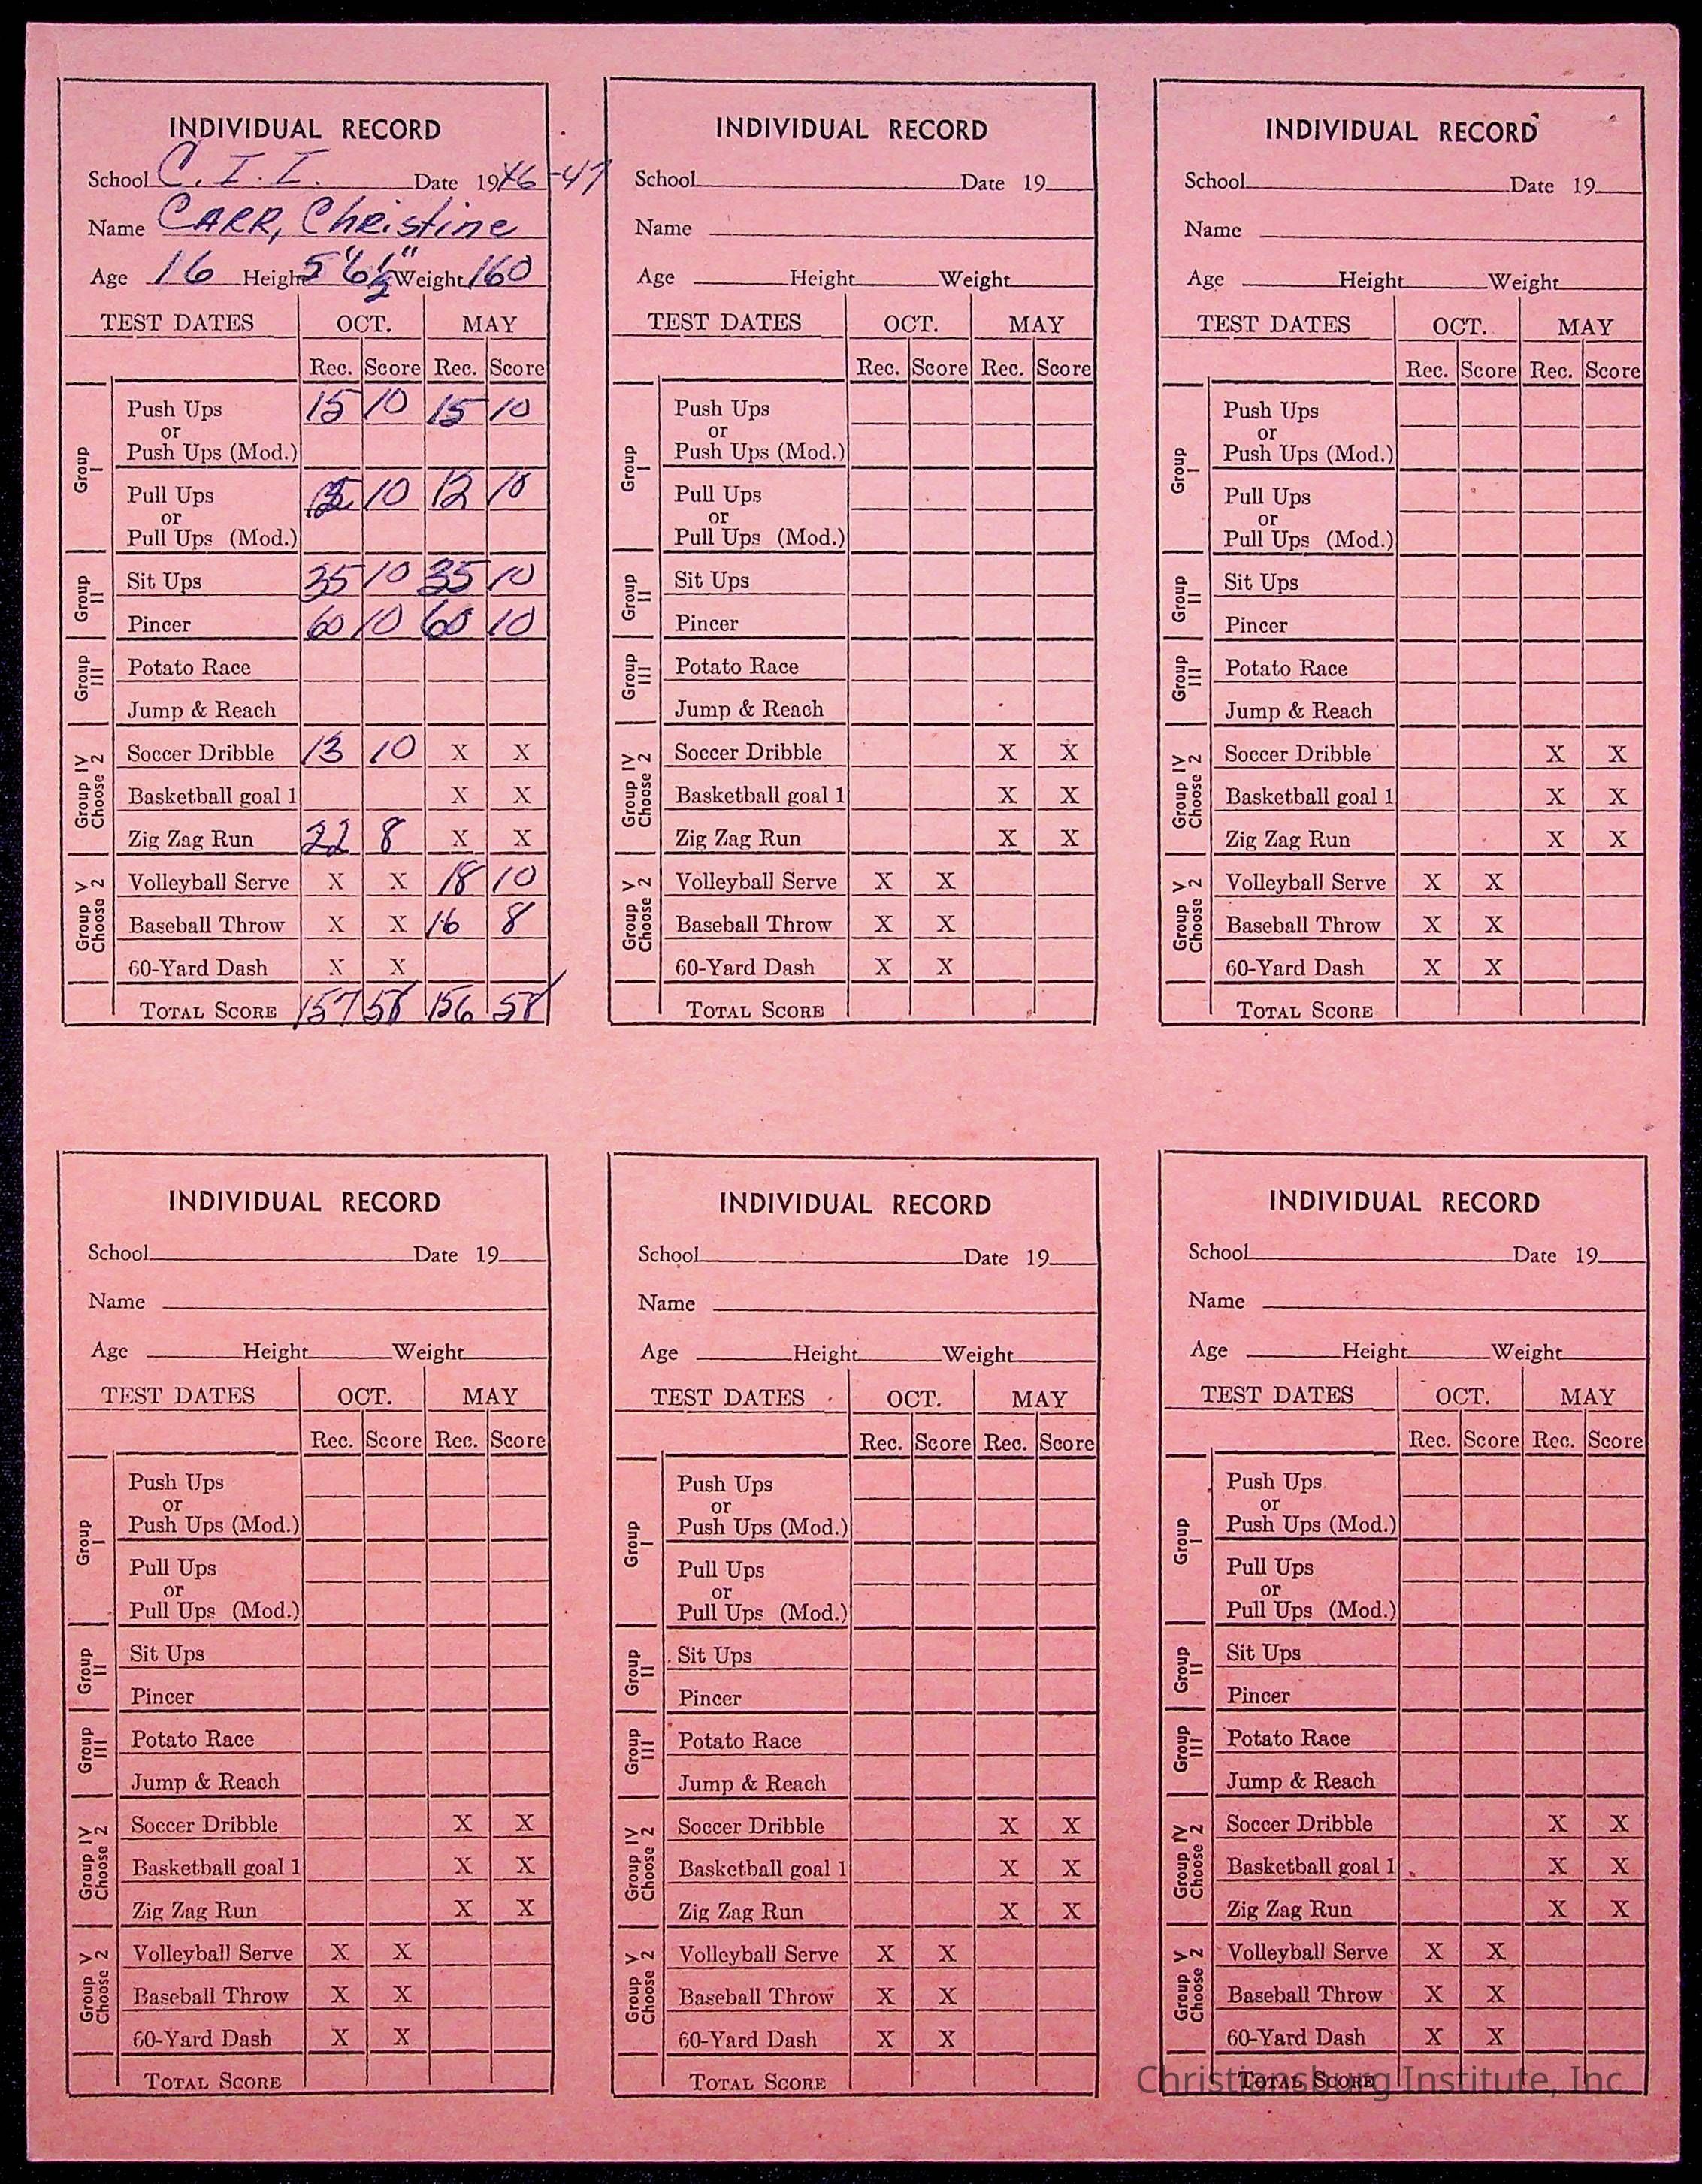 INDIVIDUAL RECORD
School C. I. I. Date 1946-47
Name CARR, Christine
Age 16 Height 5'6½" Weight 160
TEST DATES OCT. MAY
Rec. Score Rec. Score
Group I
Push Ups 15 10 15 10
or
Push Ups (Mod.)
Pull Ups 10 12 10
or
Pull Ups (Mod.)
Group II
Sit Ups 35 10 35 10
Pincer 60 10 60 10
Group III
Potato Race
Jump & Reach
Group IV Choose 2
Soccer Dribble 13 10 X X
Basketball goal 1 X X
Zig Zag Run 22 8 X X
Group V Choose 2
Volleyball Serve X X 18 10
Baseball Throw X X 16 8
60-Yard Dash X X
TOTAL SCORE 157 58 156 58
INDIVIDUAL RECORD
School Date 19
Name
Age Height Weight
TEST DATES OCT. MAY
Rec. Score Rec. Score
Group I
Push Ups
or
Push Ups (Mod.)
Pull Ups
or
Pull Ups (Mod.)
Group II
Sit Ups
Pincer
Group III
Potato Race
Jump & Reach
Group IV Choose 2
Soccer Dribble X X
Basketball goal 1 X X
Zig Zag Run X X
Group V Choose 2
Volleyball Serve X X
Baseball Throw X X
60-Yard Dash X X
TOTAL SCORE
INDIVIDUAL RECORD
School Date 19
Name
Age Height Weight
TEST DATES OCT. MAY
Rec. Score Rec. Score
Group I
Push Ups
or
Push Ups (Mod.)
Pull Ups
or
Pull Ups (Mod.)
Group II
Sit Ups
Pincer
Group III
Potato Race
Jump & Reach
Group IV Choose 2
Soccer Dribble X X
Basketball goal 1 X X
Zig Zag Run X X
Group V Choose 2
Volleyball Serve X X
Baseball Throw X X
60-Yard Dash X X
TOTAL SCORE
INDIVIDUAL RECORD
School Date 19
Name
Age Height Weight
TEST DATES OCT. MAY
Rec. Score Rec. Score
Group I
Push Ups
or
Push Ups (Mod.)
Pull Ups
or
Pull Ups (Mod.)
Group II
Sit Ups
Pincer
Group III
Potato Race
Jump & Reach
Group IV Choose 2
Soccer Dribble X X
Basketball goal 1 X X
Zig Zag Run X X
Group V Choose 2
Volleyball Serve X X
Baseball Throw X X
60-Yard Dash X X
TOTAL SCORE
INDIVIDUAL RECORD
School Date 19
Name
Age Height Weight
TEST DATES OCT. MAY
Rec. Score Rec. Score
Group I
Push Ups
or
Push Ups (Mod.)
Pull Ups
or
Pull Ups (Mod.)
Group II
Sit Ups
Pincer
Group III
Potato Race
Jump & Reach
Group IV Choose 2
Soccer Dribble X X
Basketball goal 1 X X
Zig Zag Run X X
Group V Choose 2
Volleyball Serve X X
Baseball Throw X X
60-Yard Dash X X
TOTAL SCORE
INDIVIDUAL RECORD
School Date 19
Name
Age Height Weight
TEST DATES OCT. MAY
Rec. Score Rec. Score
Group I
Push Ups
or
Push Ups (Mod.)
Pull Ups
or
Pull Ups (Mod.)
Group II
Sit Ups
Pincer
Group III
Potato Race
Jump & Reach
Group IV Choose 2
Soccer Dribble X X
Basketball goal 1 X X
Zig Zag Run X X
Group V Choose 2
Volleyball Serve X X
Baseball Throw X X
60-Yard Dash X X
TOTAL SCORE
Christiansburg Institute, Inc